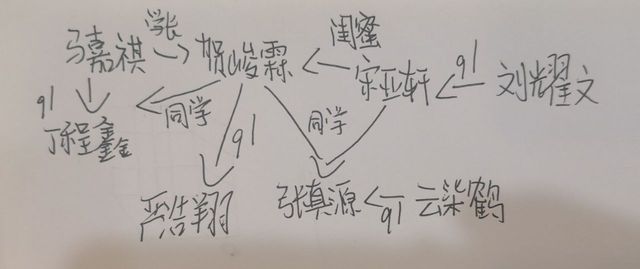 学长 闺蜜
马嘉祺 贺峻霖 宋亚轩 91 刘耀文
91 同学 91 同学
丁程鑫
严浩翔 张真源 91 云柒鹤